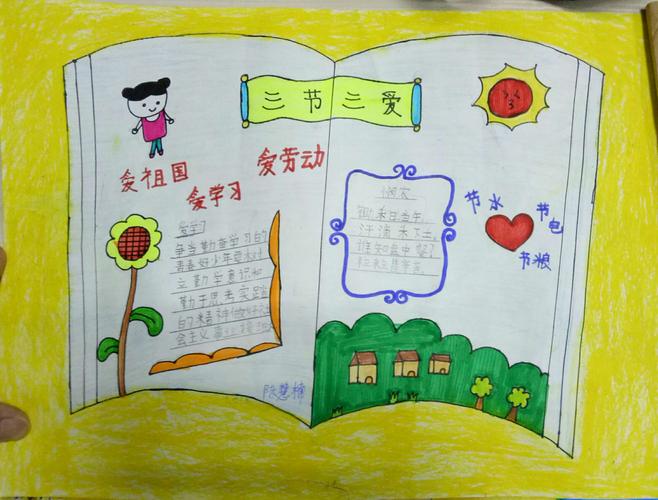 三节三爱
爱祖国
爱学习
爱劳动
爱学习
争当勤奋学习的
青春好少年要树
立勤学意识和
勤于思考实践
的精神做好社
会主义事业接班
悯农
锄禾日当午,
汗滴禾下土,
谁知盘中餐
粒粒皆辛苦
节水
节电
节粮
陈慧楠